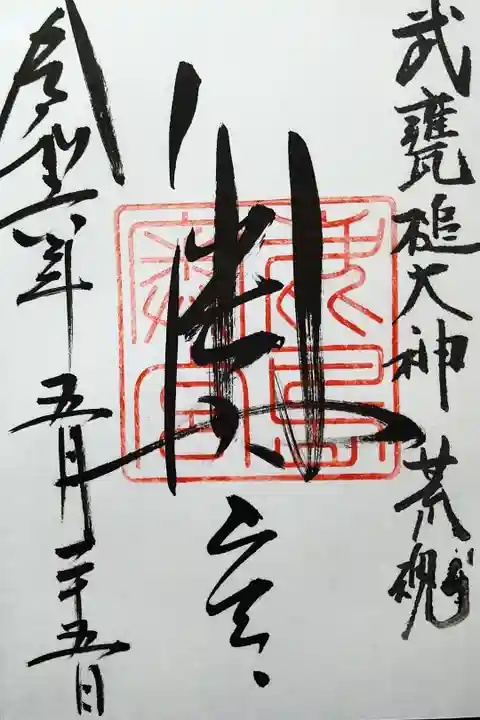 武甕槌大神 荒魂
奥宮
令和六年 五月二十五日